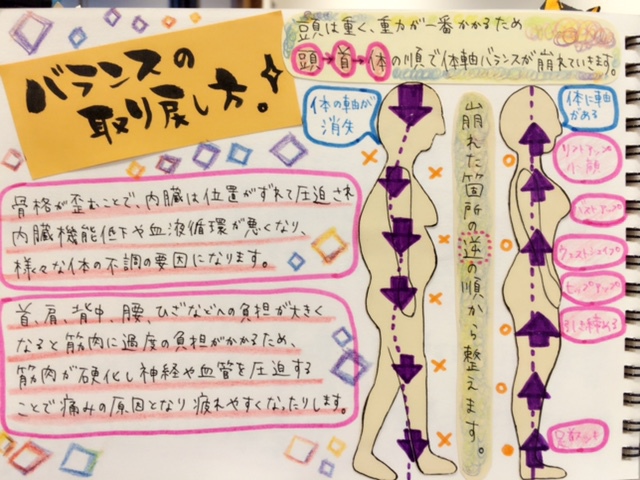 バランスの
取り戻し方!
頭は重く、重力が一番かかるため
頭→首→体の順で体軸バランスが崩れていきます。
骨格が歪むことで、内臓は位置がずれて圧迫され
内臓機能低下や血液循環が悪くなり、
様々な体の不調の要因になります。
首、肩、背中、腰、ひざなどへの負担が大きく
なると筋肉に過度の負担がかかるため、
筋肉が硬化し神経や血管を圧迫する
ことで痛みの原因となり疲れやすくなったりします。
体の軸が
消失
崩れた箇所の逆の順から整えます。
体に軸
がある
リフトアップ
小顔
バストアップ
ウエストシェイプ
ヒップアップ
引き締める